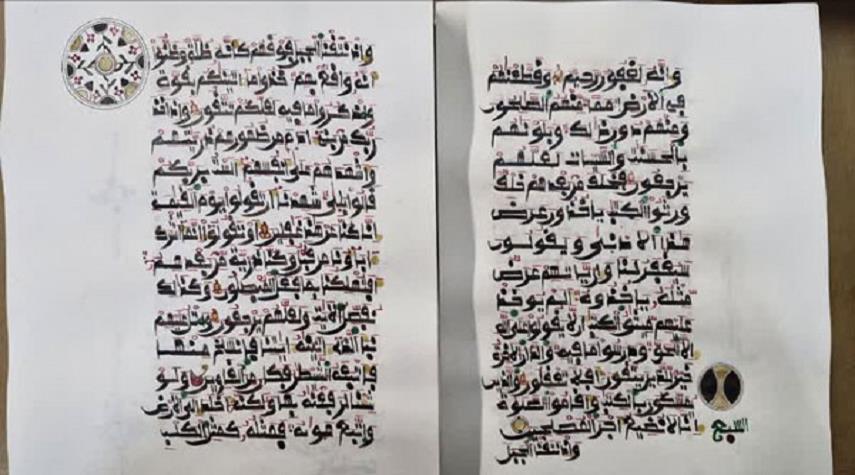 وانه لغفور رحيم وقطعنهم
في الارض امما منهم الصلحون
ومنهم دون ذلك وبلونهم
بالحسنت والسيئات لعلهم
يرجعون فخلف من بعدهم خلف
ورثوا الكتب ياخذون عرض
هذا الادنى ويقولون
سيغفر لنا وان ياتهم عرض
مثله ياخذوه الم يوخذ
عليهم ميثق الكتب ان لا يقولوا على الله
الا الحق ودرسوا ما فيه والدار الاخرة
خير للذين يتقون افلا تعقلون والذين
يمسكون بالكتب واقاموا الصلوة
انا لا نضيع اجر المصلحين
واذ نتقنا الجبل
السبع
واذ نتقنا الجبل فوقهم كانه ظلة وظنوا
انه واقع بهم خذوا ما اتينكم بقوة
واذكروا ما فيه لعلكم تتقون واذ اخذ
ربك من بني ادم من ظهورهم ذريتهم
واشهدهم على انفسهم الست بربكم
قالوا بلى شهدنا ان تقولوا يوم القيمة
انا كنا عن هذا غفلين او تقولوا انما اشرك
اباونا من قبل وكنا ذرية من بعدهم
افتهلكنا بما فعل المبطلون وكذلك
نفصل الايت ولعلهم يرجعون واتل عليهم
نبا الذي اتينه ايتنا فانسلخ منها
فاتبعه الشيطن فكان من الغاوين ولو
شئنا لرفعنه بها ولكنه اخلد الى الارض
واتبع هويه فمثله كمثل الكلب